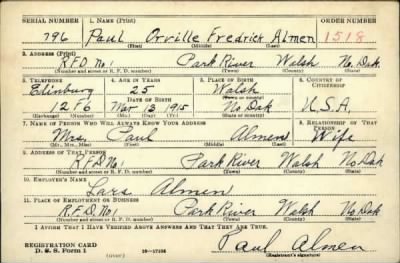 SERIAL NUMBER 1. NAME (Print) ORDER NUMBER
796 Paul Orville Fredrick Almen 1518
(First) (Middle) (Last)
2. ADDRESS (Print)
R.F.D. No 1 Park River Walsh No. Dak
(Number and street or R. F. D. number) (Town) (County) (State)
3. TELEPHONE 4. AGE IN YEARS 5. PLACE OF BIRTH 6. COUNTRY OF CITIZENSHIP
Edinburg 25 Walsh
DATE OF BIRTH (Town or county)
12 F 6 Mar 13 1915 No Dak U.S.A.
(Exchange) (Number) (Mo.) (Day) (Yr.) (State or country)
7. NAME OF PERSON WHO WILL ALWAYS KNOW YOUR ADDRESS 8. RELATIONSHIP OF THAT PERSON
Mrs. Paul Almen Wife
(Mr., Mrs., Miss) (First) (Middle) (Last)
9. ADDRESS OF THAT PERSON
R.F.D No 1 Park River Walsh No Dak
(Number and street or R. F. D. number) (Town) (County) (State)
10. EMPLOYER'S NAME
Lars Almen
11. PLACE OF EMPLOYMENT OR BUSINESS
R.F.D. No 1 Park River Walsh No Dak
(Number and street or R. F. D. number) (Town) (County) (State)
I AFFIRM THAT I HAVE VERIFIED ABOVE ANSWERS AND THAT THEY ARE TRUE.
REGISTRATION CARD
D. S. S. Form 1 (over) Paul Almen
(Registrant's signature)